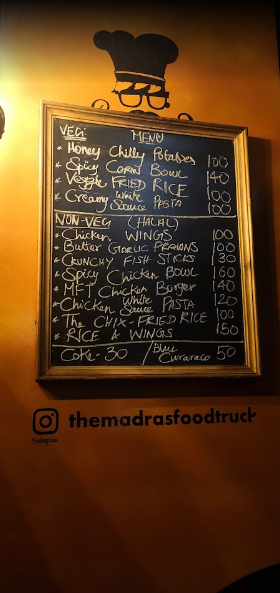 VEG: MENU
* Honey Chilly Potatoes 100
* Spicy CORN BOWL 140
* Veggie FRIED RICE 100
* Creamy White Sauce PASTA 100
NON-VEG (HALAL)
* Chicken WINGS 100
* Butter GARLIC PRAWNS 100
* CRUNCHY FISH STICKS 130
* Spicy Chicken BOWL 160
* MFT Chicken Burger 140
* Chicken White Sauce PASTA 120
* The CHIX-FRIED RICE 100
* RICE & WINGS 150
Coke - 30 / Blue Curaraco 50
Instagram
themadrasfoodtruck